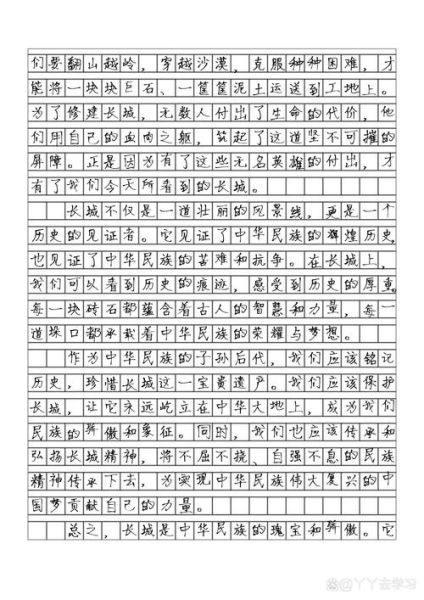 们要翻山越岭，穿越沙漠，克服种种困难，才
能将一块块巨石、一筐筐泥土运送到工地上。
为了修建长城，无数人付出了生命的代价，他
们用自己的血肉之躯，筑起了这道坚不可摧的
屏障。正是因为有了这些无名英雄的付出，才
有了我们今天所看到的长城。
长城不仅是一道壮丽的风景线，更是一个
历史的见证者。它见证了中华民族的辉煌历史，
也见证了中华民族的苦难和抗争。在长城上，
我们可以看到历史的痕迹，感受到历史的厚重。
每一块砖石都蕴含着古人的智慧和力量，每一
道垛口都承载着中华民族的荣耀与梦想。
作为中华民族的子孙后代，我们应该铭记
历史，珍惜长城这一宝贵遗产。我们应该保护
长城，让它永远屹立在中华大地上，成为我们
民族的骄傲和象征。同时，我们也应该传承和
弘扬长城精神，将不屈不挠、自强不息的民族
精神传承下去，为实现中华民族伟大复兴的中
国梦贡献自己的力量。
总之，长城是中华民族的瑰宝和骄傲。它
@丫丫去学习